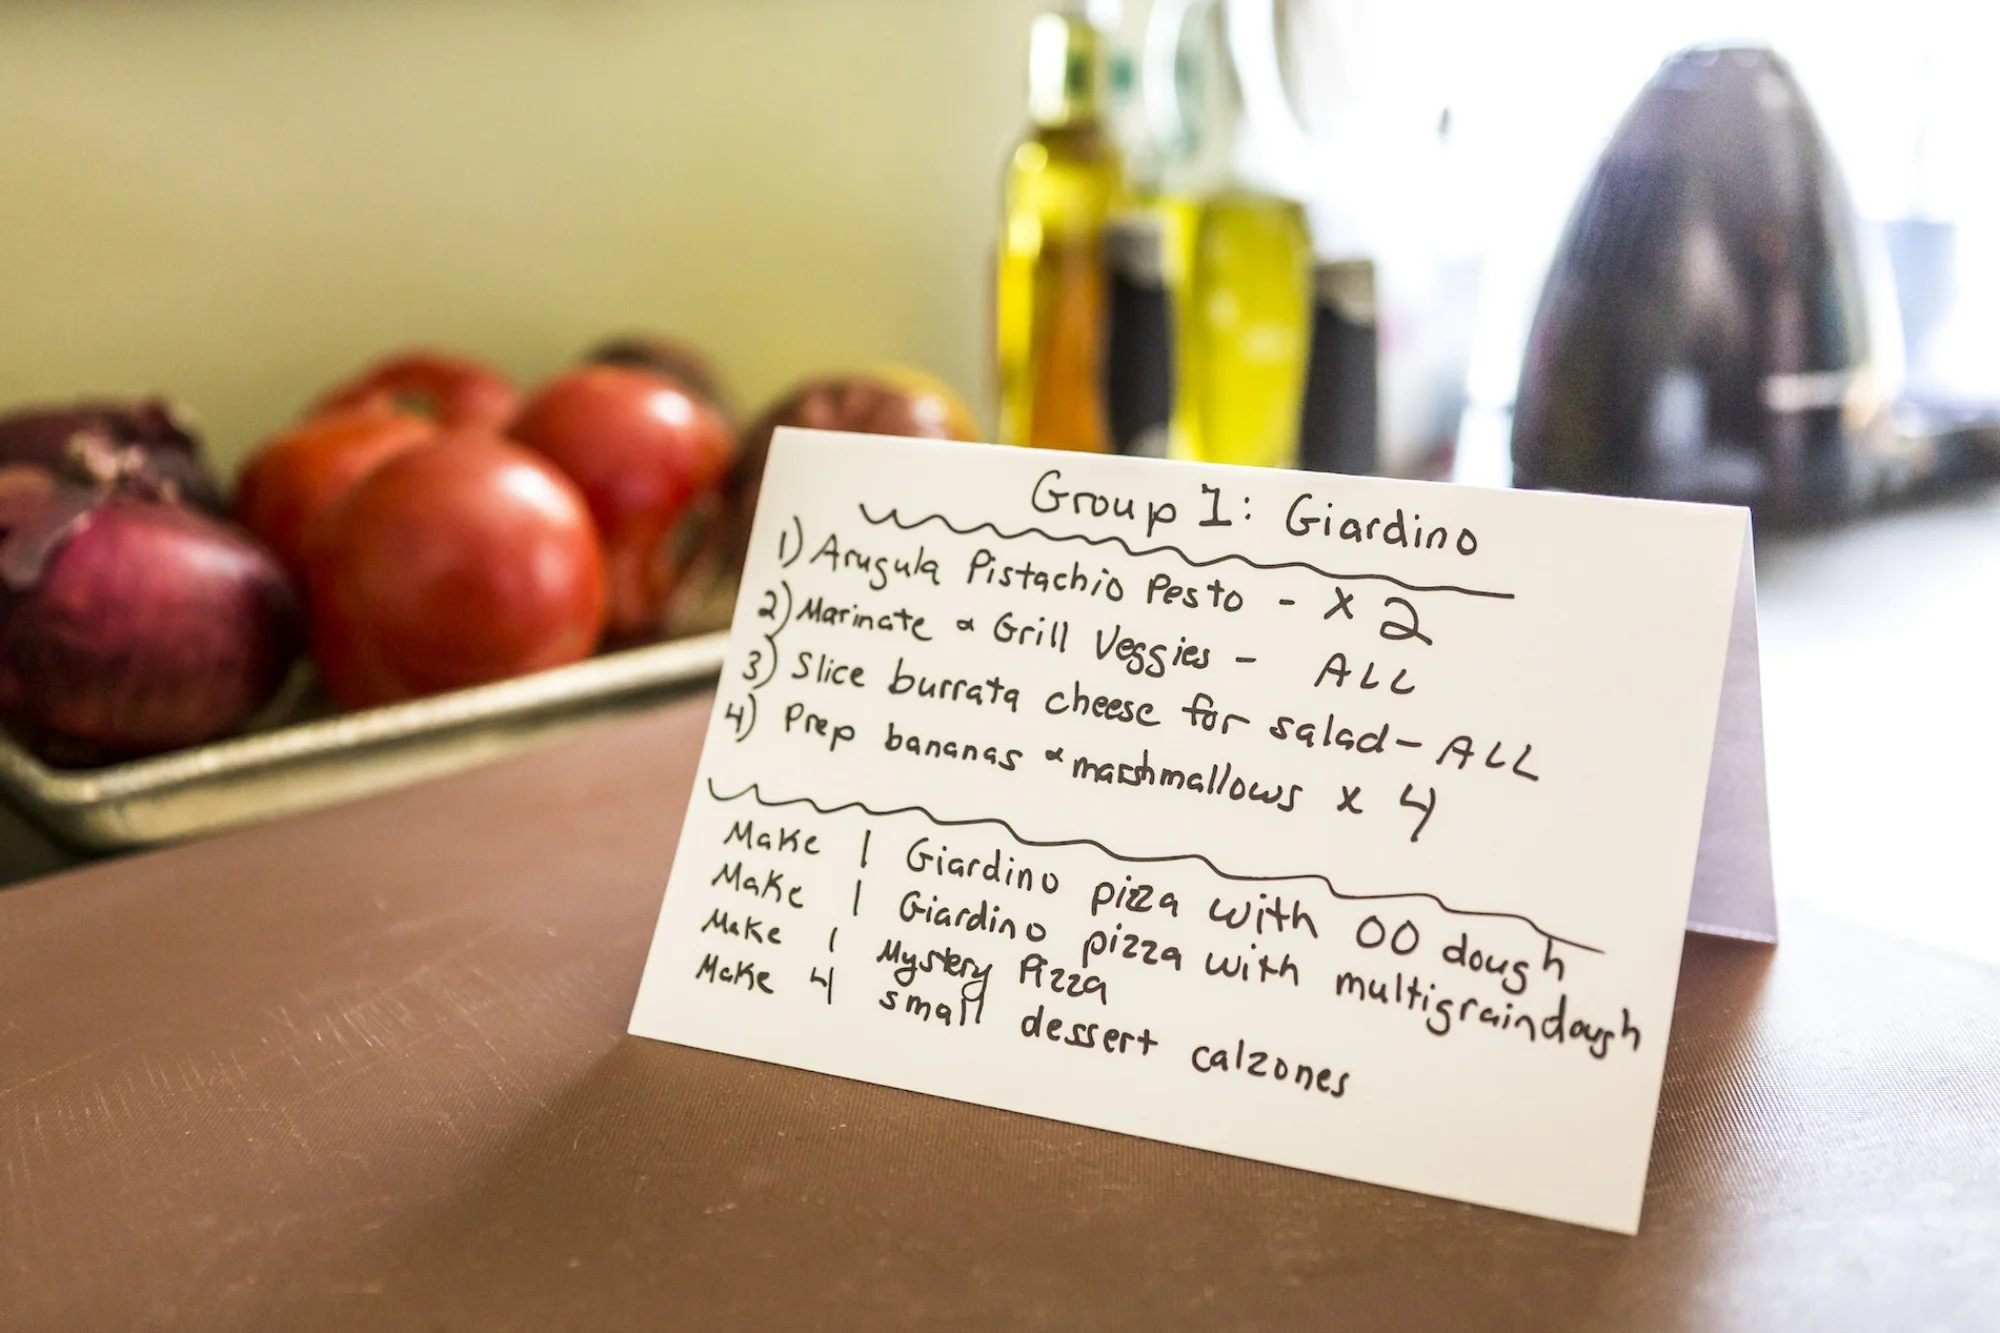 Group 1: Giardino
1) Arugula Pistachio Pesto - x 2
2) Marinate & Grill Veggies - ALL
3) Slice burrata cheese for salad - ALL
4) Prep bananas & marshmallows x 4
Make 1 Giardino pizza with 00 dough
Make 1 Giardino pizza with multigrain dough
Make 1 Mystery Pizza
Make 4 small dessert calzones